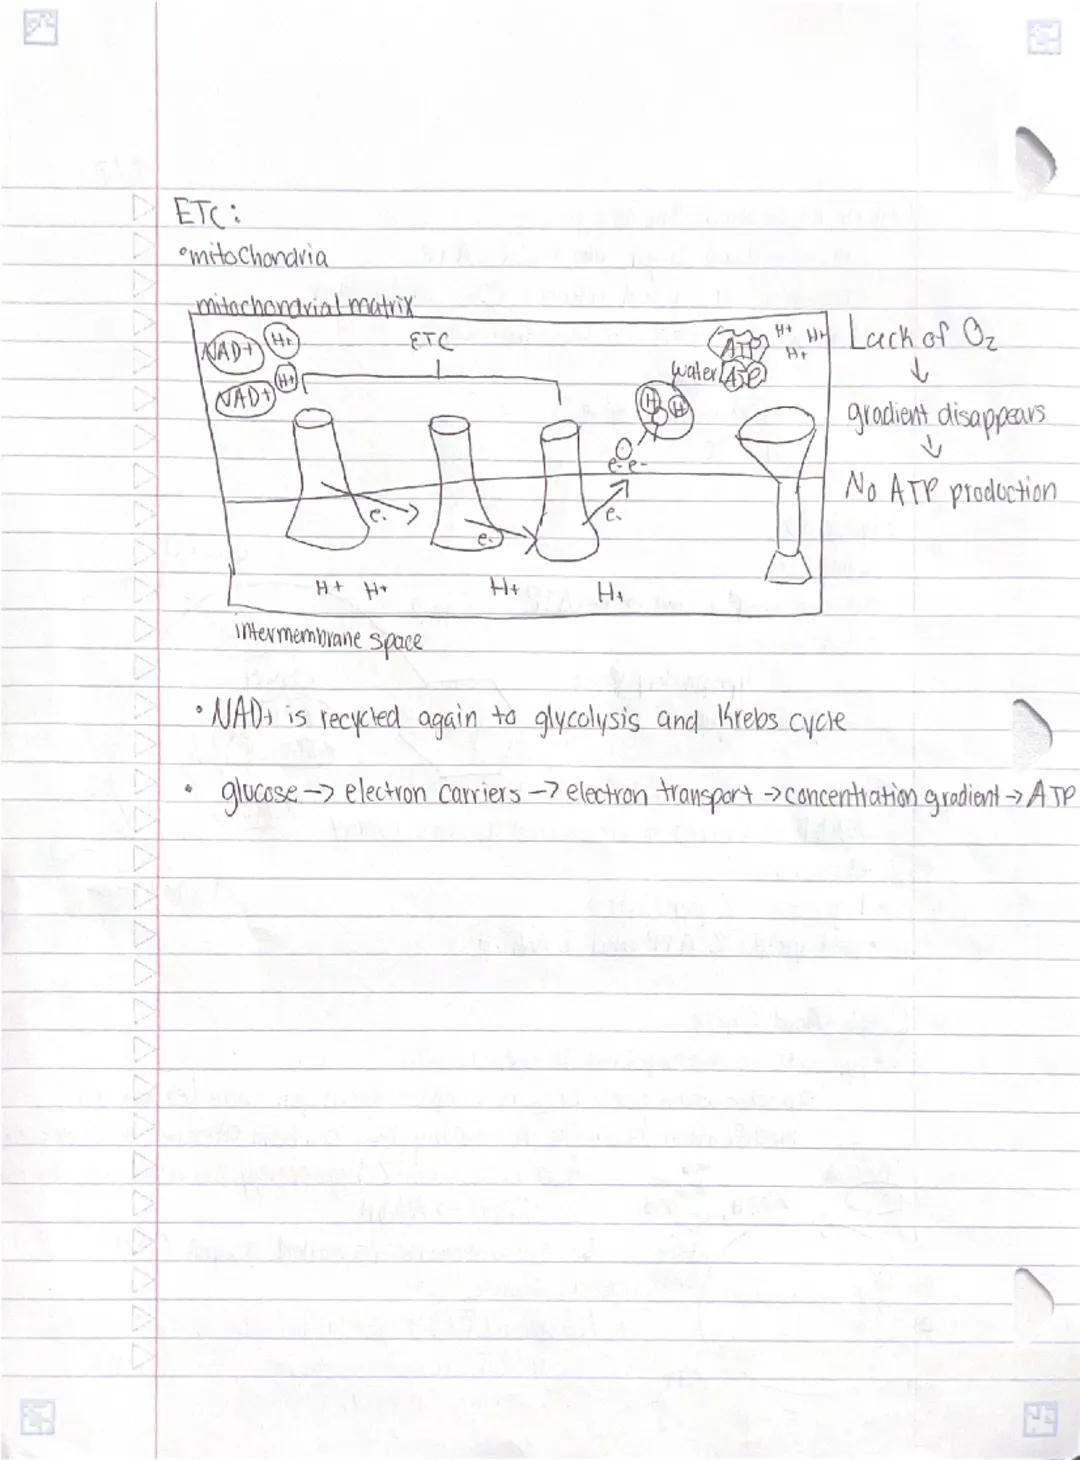 ETC:
•mitochondria
mitochondrial matrix
NAD+ H+ ETC ATP H+ H+ H+ Lack of O₂
NAD+ H+ water ATP ↓
H H gradient disappears
↓
e- e- No ATP production
e. e. e.
H+ H+ H+ H+
intermembrane space
• NAD+ is recycled again to glycolysis and Krebs cycle
• glucose → electron carriers → electron transport → concentration gradient → ATP